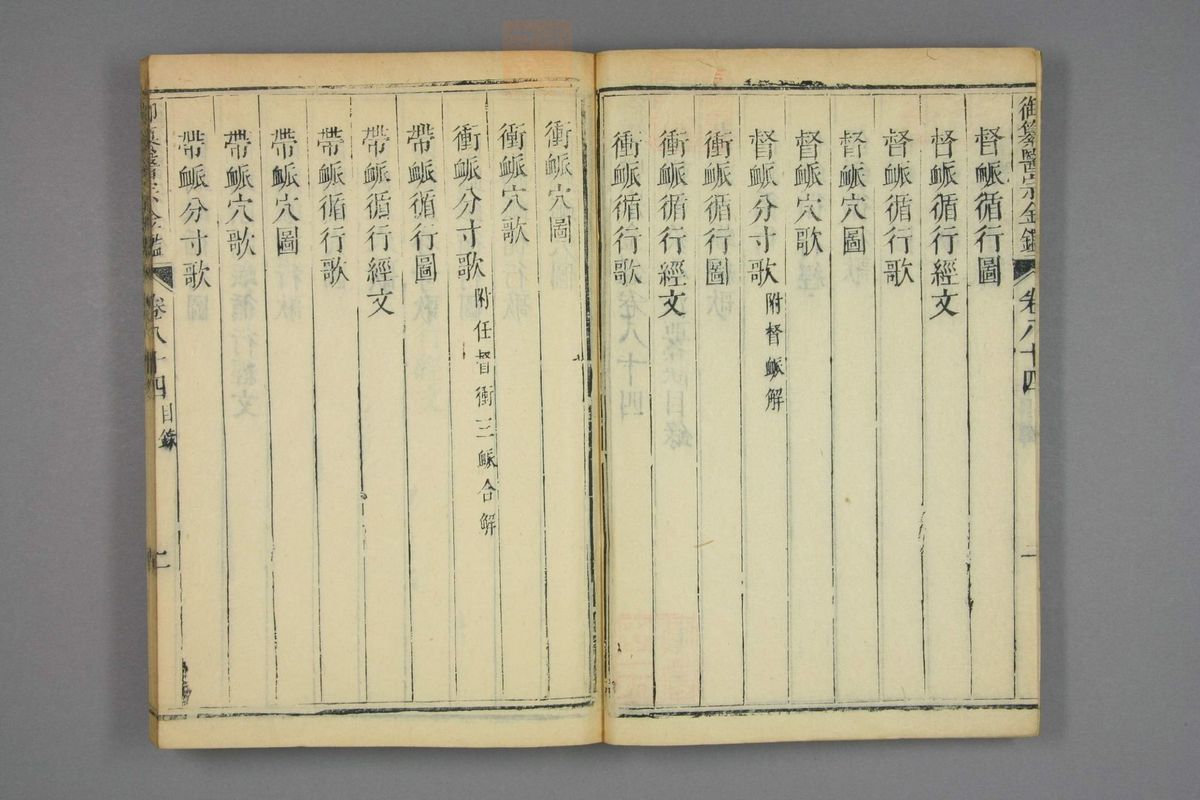 御纂醫宗金鑑 卷八十四
督䘑循行圖
督䘑循行經文
督䘑循行歌
督䘑穴圖
督䘑穴歌
督䘑分寸歌 附督䘑解
衝䘑循行圖
衝䘑循行經文
衝䘑循行歌
衝䘑穴圖
衝䘑穴歌
衝䘑分寸歌 附任督衝三䘑合解
帶䘑循行圖
帶䘑循行經文
帶䘑循行歌
帶䘑穴圖
帶䘑穴歌
帶䘑分寸歌
御纂醫宗金鑑 卷八十四 目錄